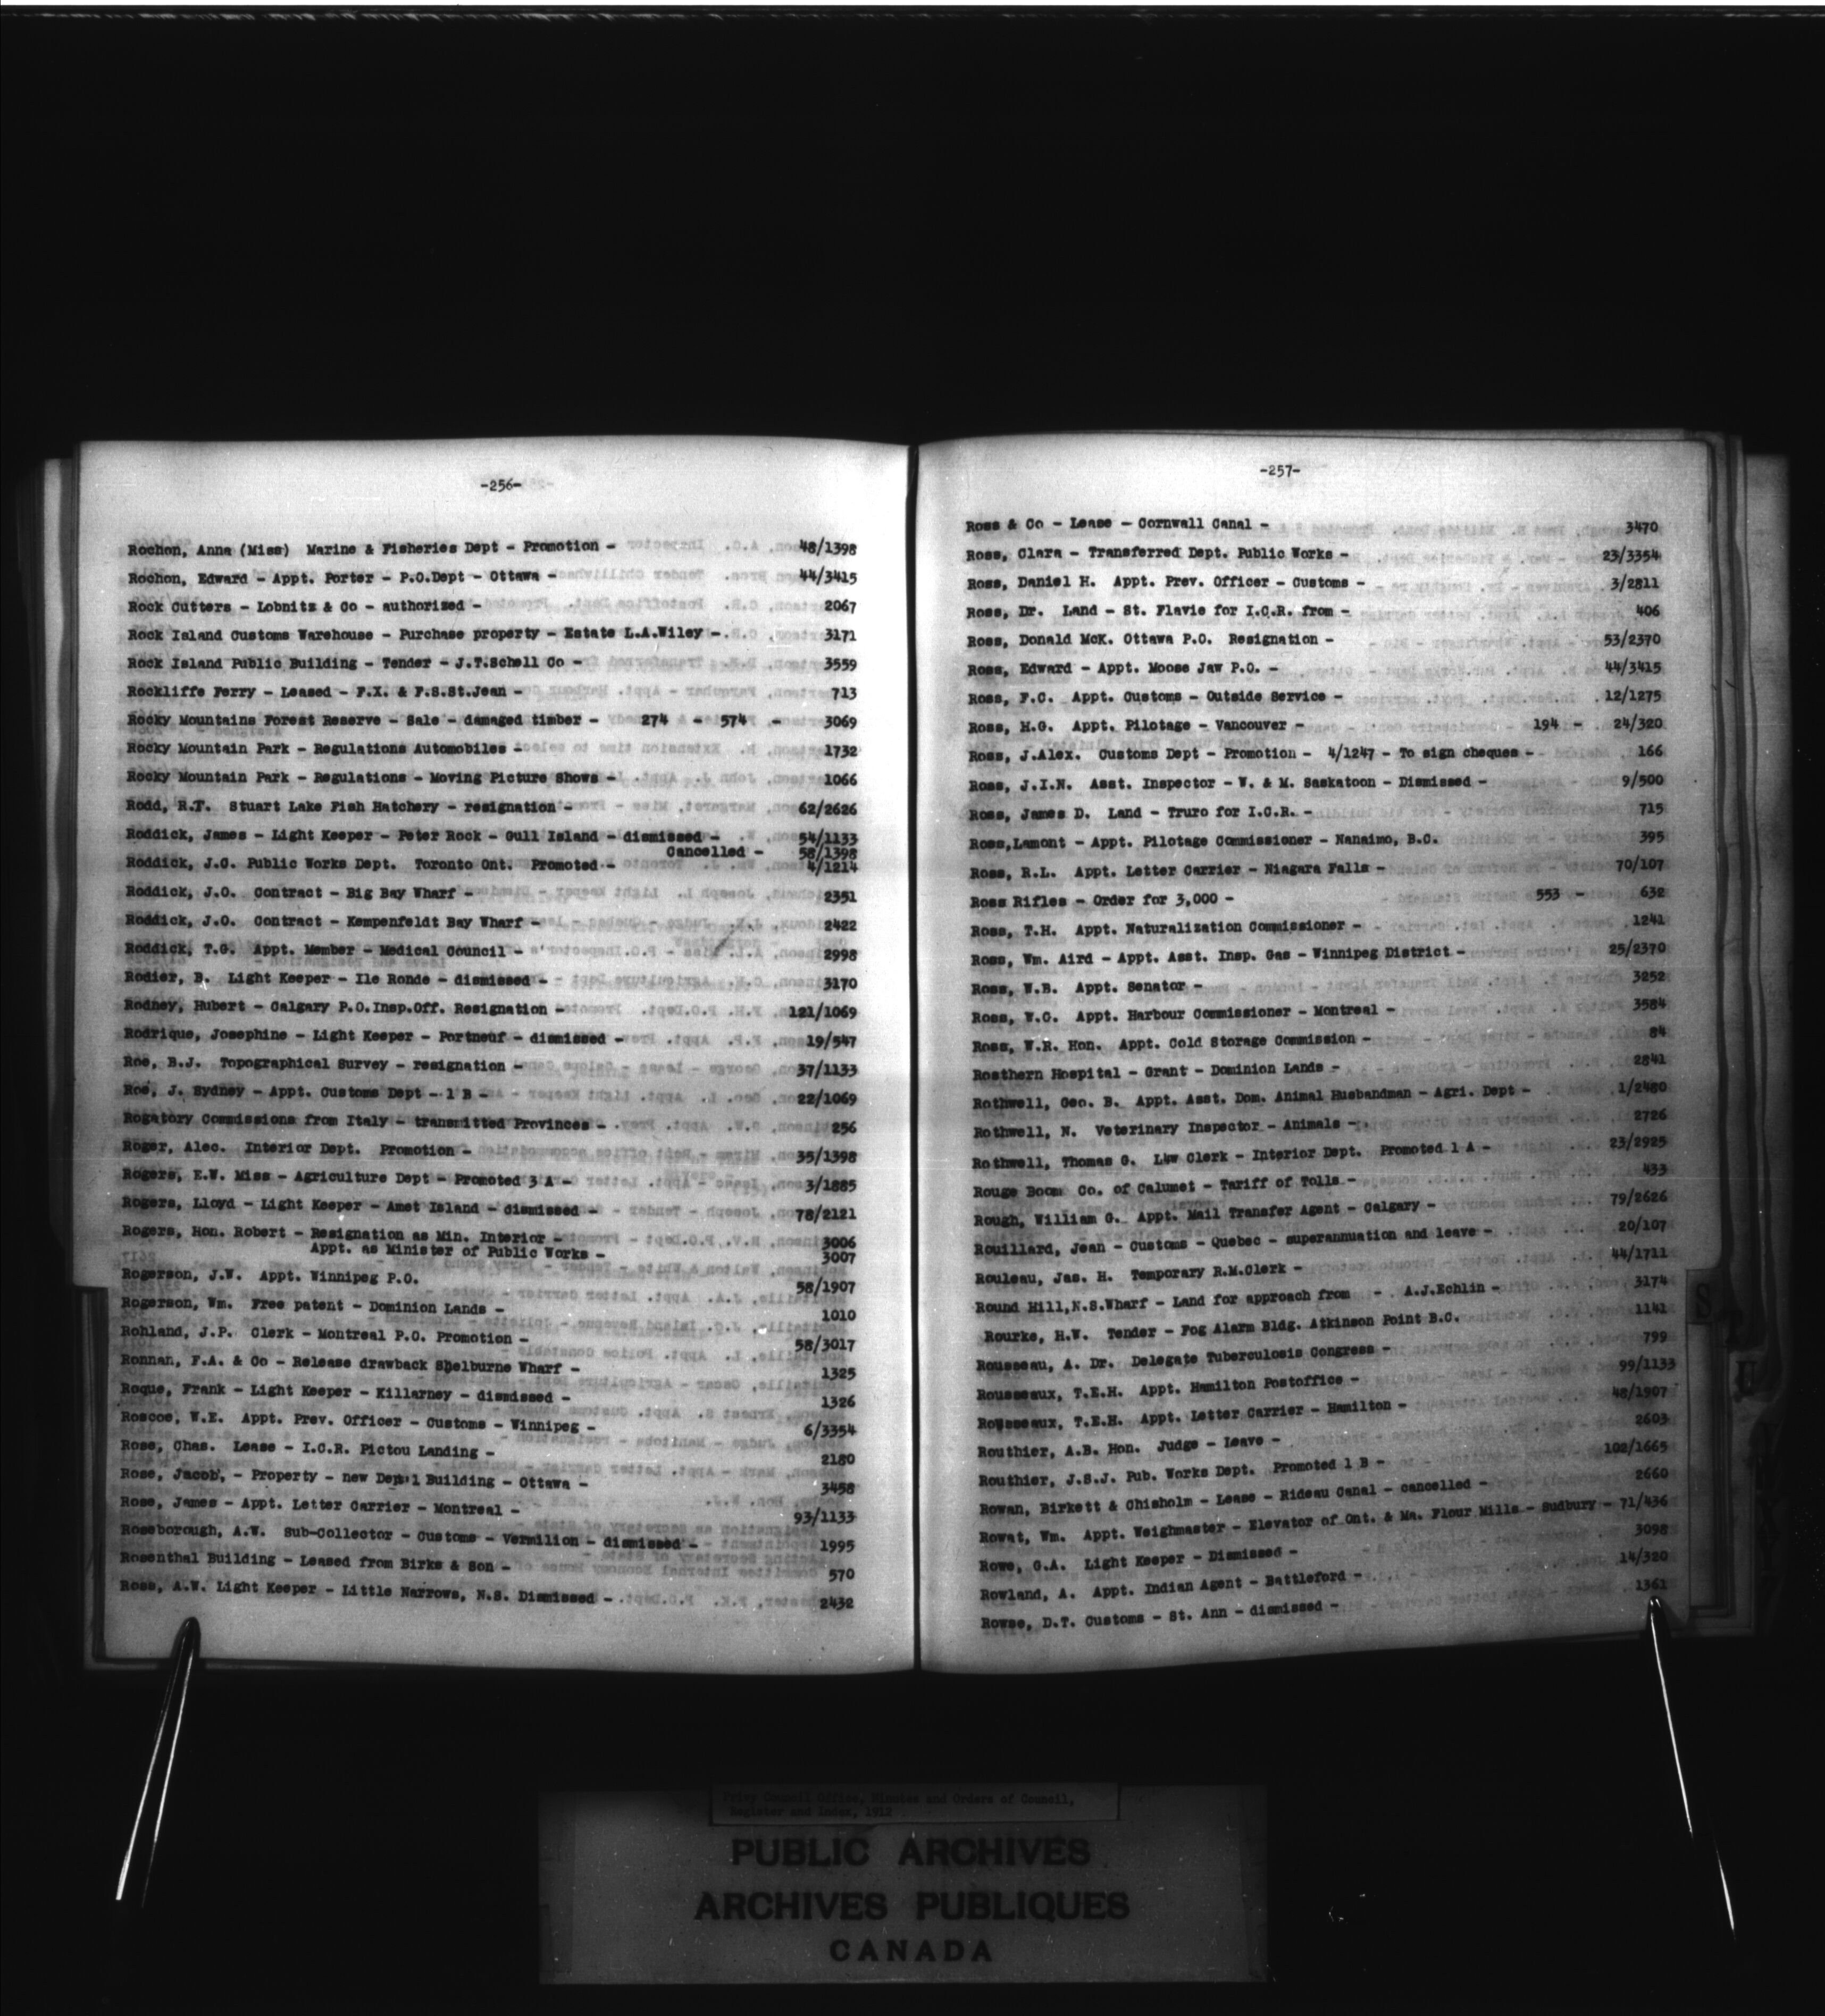 -256-
Rochon, Anna (Miss) Marine & Fisheries Dept - Promotion - 48/1398
Rochon, Edward - Appt. Porter - P.O.Dept - Ottawa - 44/3415
Rock Cutters - Lobnitz & Co - authorized - 2067
Rock Island Customs Warehouse - Purchase property - Estate L.A.Wiley - 3171
Rock Island Public Building - Tender - J.T.Schell Co - 3559
Rockliffe Ferry - Leased - F.X. & F.S.St.Jean - 713
Rocky Mountains Forest Reserve - Sale - damaged timber - 274 - 574 - 3069
Rocky Mountain Park - Regulations Automobiles - 1732
Rocky Mountain Park - Regulations - Moving Picture Shows - 1066
Rodd, R.T. Stuart Lake Fish Hatchery - resignation - 62/2626
Roddick, James - Light Keeper - Peter Rock - Gull Island - dismissed - 54/1133
Cancelled - 58/1398
Roddick, J.C. Public Works Dept. Toronto Ont. Promoted - 4/1214
Roddick, J.O. Contract - Big Bay Wharf - 2351
Roddick, J.O. Contract - Kempenfeldt Bay Wharf - 2422
Roddick, T.G. Appt. Member - Medical Council - 2998
Rodier, B. Light Keeper - Ile Ronde - dismissed - 3170
Rodney, Hubert - Calgary P.O.Insp.Off. Resignation - 121/1069
Rodrique, Josephine - Light Keeper - Portneuf - dismissed - 19/547
Roe, B.J. Topographical Survey - resignation - 37/1133
Roe, J. Sydney - Appt. Customs Dept - 1 B - 22/1069
Rogatory Commissions from Italy - transmitted Provinces - 256
Roger, Alec. Interior Dept. Promotion - 35/1398
Rogers, E.W. Miss - Agriculture Dept - Promoted 3 A - 3/1885
Rogers, Lloyd - Light Keeper - Amet Island - dismissed - 78/2121
Rogers, Hon. Robert - Resignation as Min. Interior - 3006
Appt. as Minister of Public Works - 3007
Rogerson, J.W. Appt. Winnipeg P.O. 58/1907
Rogerson, Wm. Free patent - Dominion Lands - 1010
Rohland, J.P. Clerk - Montreal P.O. Promotion - 58/3017
Ronnan, F.A. & Co - Release drawback Shelburne Wharf - 1325
Roque, Frank - Light Keeper - Killarney - dismissed - 1326
Roscoe, W.E. Appt. Prev. Officer - Customs - Winnipeg - 6/3354
Rose, Chas. Lease - I.C.R. Pictou Landing - 2180
Rose, Jacob, - Property - new Dep'l Building - Ottawa - 3458
Rose, James - Appt. Letter Carrier - Montreal - 93/1133
Roseborough, A.W. Sub-Collector - Customs - Vermilion - dismissed - 1995
Rosenthal Building - Leased from Birks & Son - 570
Ross, A.W. Light Keeper - Little Narrows, N.S. Dismissed - 2432
-257-
Ross & Co - Lease - Cornwall Canal - 3470
Ross, Clara - Transferred Dept. Public Works - 23/3354
Ross, Daniel H. Appt. Prev. Officer - Customs - 3/2811
Ross, Dr. Land - St. Flavie for I.C.R. from - 406
Ross, Donald McK. Ottawa P.O. Resignation - 53/2370
Ross, Edward - Appt. Moose Jaw P.O. - 44/3415
Ross, F.C. Appt. Customs - Outside Service - 12/1275
Ross, H.G. Appt. Pilotage - Vancouver - 194 - 24/320
Ross, J.Alex. Customs Dept - Promotion - 4/1247 - To sign cheques - 166
Ross, J.I.N. Asst. Inspector - W. & M. Saskatoon - Dismissed - 9/500
Ross, James D. Land - Truro for I.C.R. - 715
Ross,Lamont - Appt. Pilotage Commissioner - Nanaimo, B.C. 395
Ross, R.L. Appt. Letter Carrier - Niagara Falls - 70/107
Ross Rifles - Order for 3,000 - 553 - 632
Ross, T.H. Appt. Naturalization Commissioner - 1241
Ross, Wm. Aird - Appt. Asst. Insp. Gas - Winnipeg District - 25/2370
Ross, W.B. Appt. Senator - 3252
Ross, W.G. Appt. Harbour Commissioner - Montreal - 3584
Ross, W.R. Hon. Appt. Cold Storage Commission - 84
Rosthern Hospital - Grant - Dominion Lands - 2841
Rothwell, Geo. B. Appt. Asst. Dom. Animal Husbandman - Agri. Dept - 1/2480
Rothwell, N. Veterinary Inspector - Animals - 2726
Rothwell, Thomas G. Law Clerk - Interior Dept. Promoted 1 A - 23/2925
Rouge Boom Co. of Calumet - Tariff of Tolls - 433
Rough, William G. Appt. Mail Transfer Agent - Calgary - 79/2626
Rouillard, Jean - Customs - Quebec - superannuation and leave - 20/107
Rouleau, Jas. H. Temporary R.M.Clerk - 44/1711
Round Hill,N.S.Wharf - Land for approach from - A.J.Echlin - 3174
Rourke, H.W. Tender - Fog Alarm Bldg. Atkinson Point B.C. 1141
Rousseau, A. Dr. Delegate Tuberculosis Congress - 799
Rousseaux, T.E.H. Appt. Hamilton Postoffice - 99/1133
Rousseaux, T.E.H. Appt. Letter Carrier - Hamilton - 48/1907
Routhier, A.B. Hon. Judge - Leave - 2603
Routhier, J.S.J. Pub. Works Dept. Promoted 1 B - 102/1665
Rowan, Birkett & Chisholm - Lease - Rideau Canal - cancelled - 2660
Rowat, Wm. Appt. Weighmaster - Elevator of Ont. & Ma. Flour Mills - Sudbury - 71/436
Rowe, G.A. Light Keeper - Dismissed - 3098
Rowland, A. Appt. Indian Agent - Battleford - 14/320
Rowse, D.T. Customs - St. Ann - dismissed - 1361
S
U
Privy Council Office, Minutes and Orders of Council,
Register and Index, 1912
PUBLIC ARCHIVES
ARCHIVES PUBLIQUES
CANADA